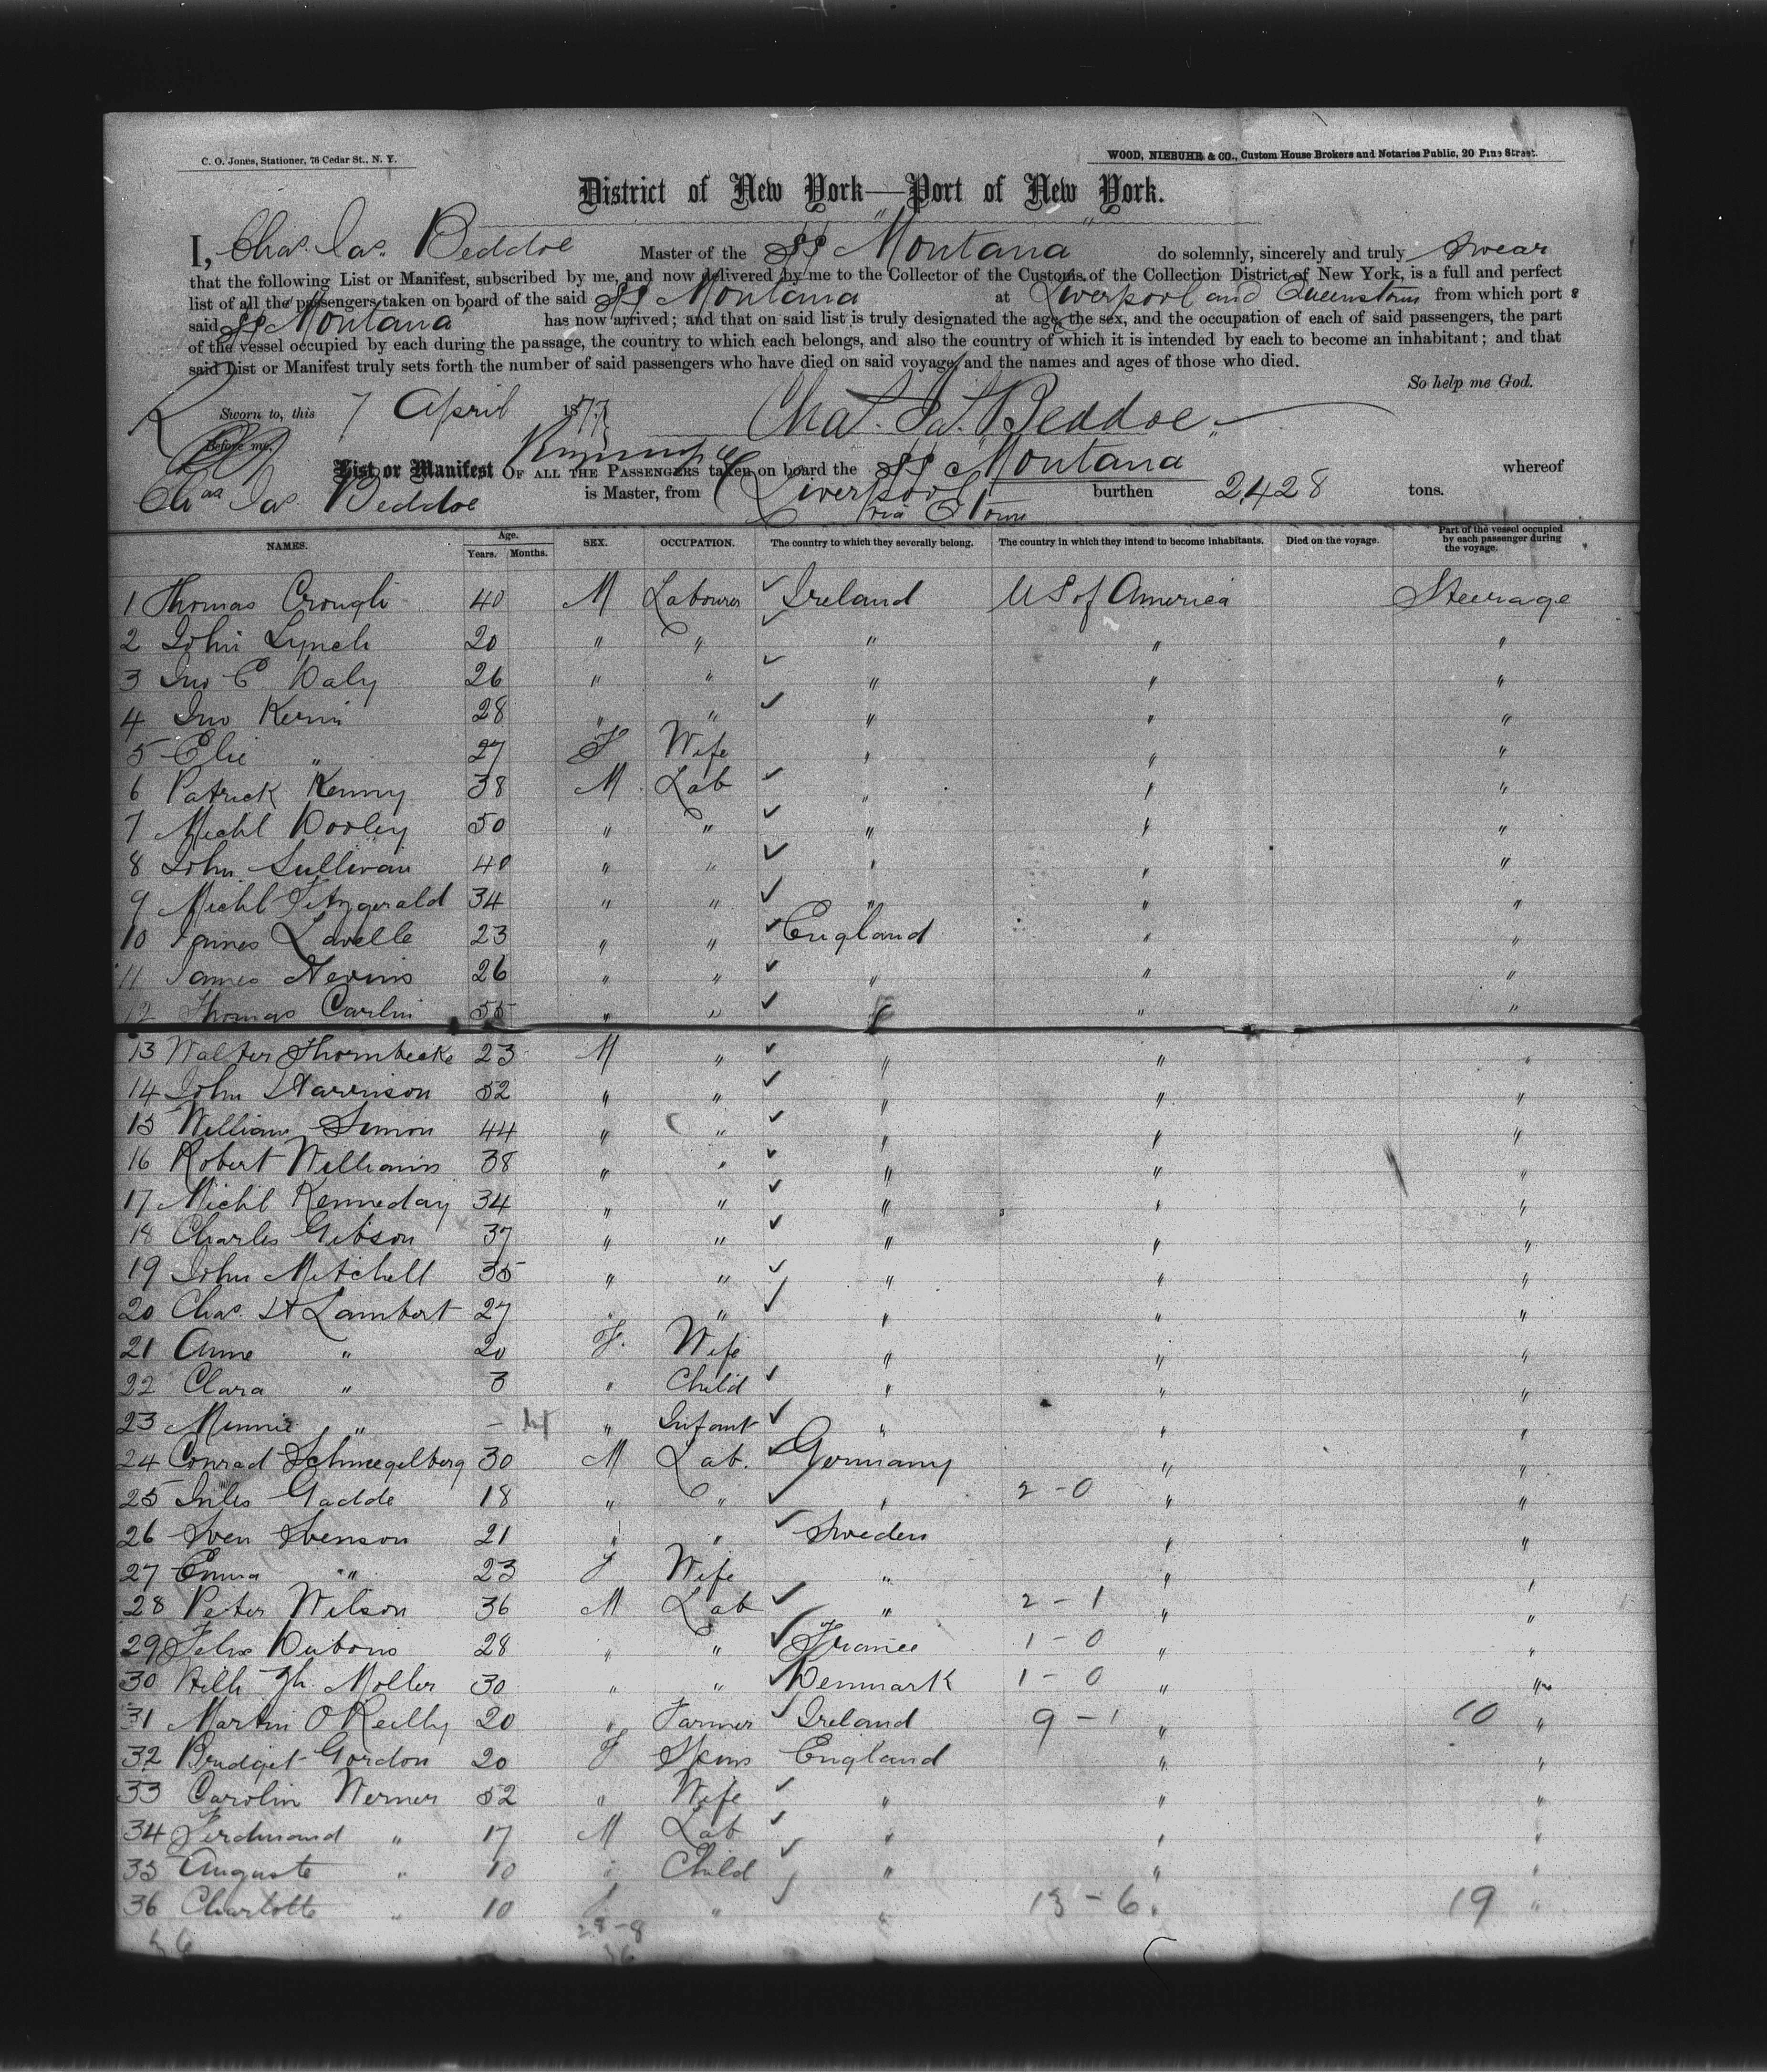 C. O. Jones, Stationer, 76 Cedar St., N. Y.
WOOD, NIEBUHR & CO., Custom House Brokers and Notaries Public, 20 Pine Street.
District of New York—Port of New York.
I, Chas. Jas. Beddoe Master of the SS "Montana" do solemnly, sincerely and truly swear
that the following List or Manifest, subscribed by me, and now delivered by me to the Collector of the Customs of the Collection District of New York, is a full and perfect
list of all the passengers taken on board of the said SS Montana at Liverpool and Queenstown from which port s
said SS "Montana" has now arrived; and that on said list is truly designated the age, the sex, and the occupation of each of said passengers, the part
of the vessel occupied by each during the passage, the country to which each belongs, and also the country of which it is intended by each to become an inhabitant; and that
said List or Manifest truly sets forth the number of said passengers who have died on said voyage, and the names and ages of those who died.
So help me God.
Sworn to, this 7 April 1877 Chas. Jas. Beddoe
Before me,
List or Manifest OF ALL THE PASSENGERS taken on board the SS Montana whereof
Chas Jas. Beddoe is Master, from Liverpool burthen 2428 tons.
via QTown
NAMES. Age. Years. Months. SEX. OCCUPATION. The country to which they severally belong. The country in which they intend to become inhabitants. Died on the voyage. Part of the vessel occupied by each passenger during the voyage.
1 Thomas Crough 40 M Labourer Ireland US of America Steerage
2 John Lynch 20 " " " " "
3 Jno C Daly 26 " " " " "
4 Jno Kerin 28 " " " " "
5 Elie " 27 F Wife " " "
6 Patrick Kenny 38 M Lab " " "
7 Michl Dooley 50 " " " " "
8 John Sullivan 40 " " " " "
9 Michl Fitzgerald 34 " " " " "
10 James Lavelle 23 " " England " "
11 James Nevins 26 " " " " "
12 Thomas Carlin 55 " " " " "
13 Walter Thornbecke 23 M " " " "
14 John Harrison 52 " " " " "
15 William Simon 44 " " " " "
16 Robert Williams 38 " " " " "
17 Michl Kenneday 34 " " " " "
18 Charles Gibson 37 " " " " "
19 John Mitchell 35 " " " " "
20 Chas. H Lambert 27 " " " " "
21 Anne " 20 F. Wife " " "
22 Clara " 3 " Child " " "
23 Minnie " - " Infant " " "
24 Conrad Schmegelberg 30 M Lab. Germany " "
25 Gadde 18 " " " 2 - 0 " "
26 Sven Svenson 21 " " Sweden " "
27 Emma " 23 F Wife " " "
28 Peter Wilson 36 M Lab " 2 - 1 " "
29 Felix Dubois 28 " " France 1 - 0 " "
30 Th. Moller 30 " " Denmark 1 - 0 " "
31 Martin O Reilly 20 " Farmer Ireland 9 - 1 " 10 "
32 Bridget Gordon 20 F Spins England " "
33 Carolin Werner 52 " Wife " " "
34 Ferdinand " 17 M Lab " " "
35 Auguste " 10 " Child " " "
36 Charlotte " 10 " " 13 - 6 " 19 "
36 28-8
36